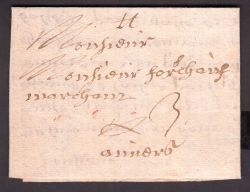 Monsieur
Monsieur
marchant
anvers